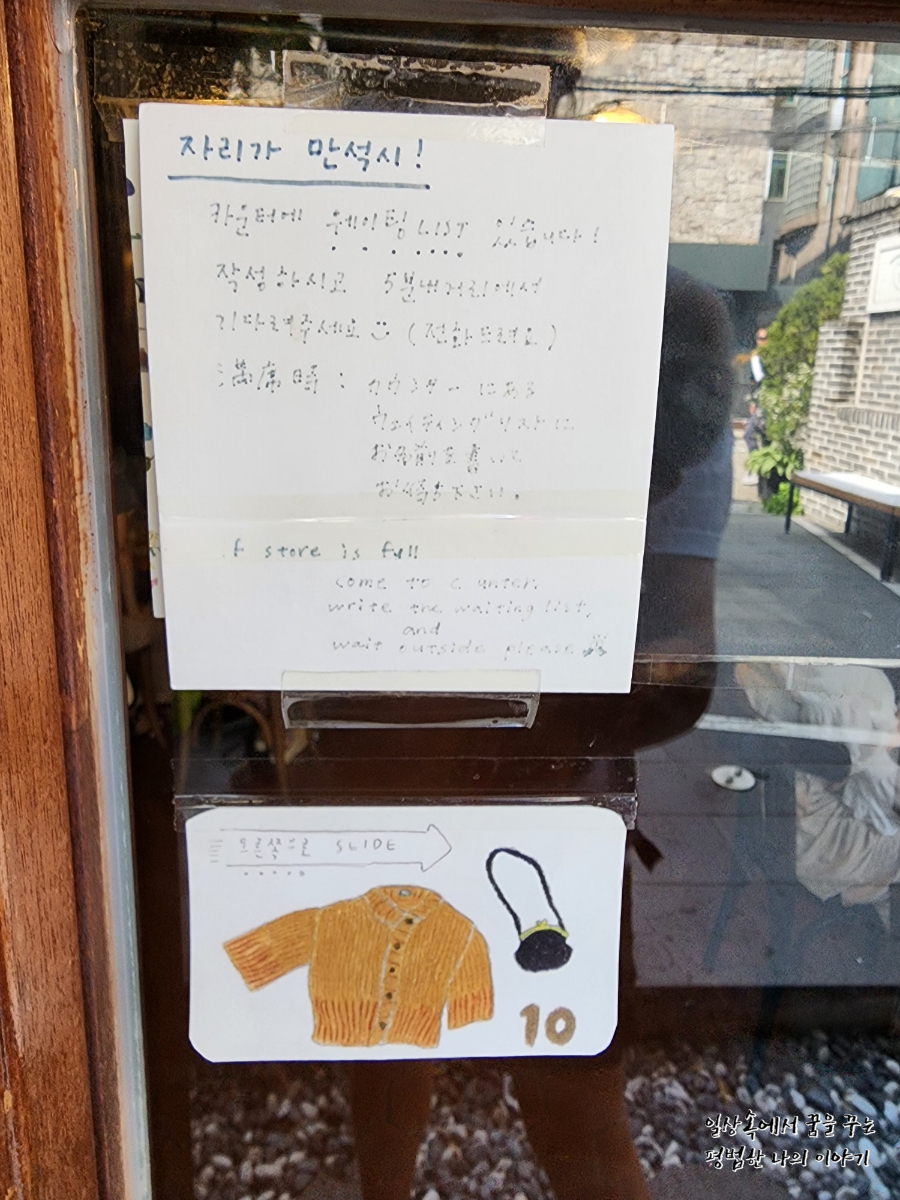 자리가 만석시!
카운터에 웨이팅 LIST 있습니다!
작성하시고 5분내거리에서
기다려주세요 (전화드려요)
満席時 : カウンターにある
ウェイティングリストに
お名前を書いて
お待ち下さい。
f store is full
come to c unter,
write the waiting list,
and
wait outside please
오른쪽으로 SLIDE
10
일상속에서 꿈을 꾸는
평범한 나의 이야기